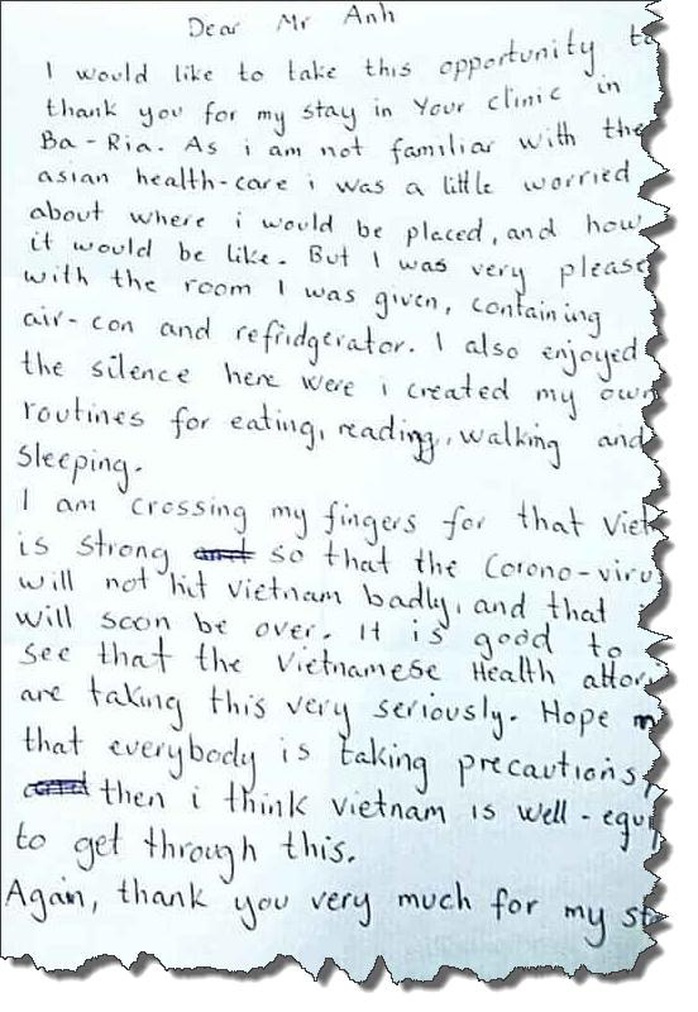 Dear Mr Anh
I would like to take this opportunity to
thank you for my stay in Your clinic in
Ba-Ria. As i am not familiar with the
asian health-care i was a little worried
about where i would be placed, and how
it would be like. But I was very please
with the room I was given, containing
air-con and refridgerator. I also enjoyed
the silence here were i created my own
routines for eating, reading, walking and
Sleeping.
I am crossing my fingers for that Viet
is strong so that the Corono-viru
will not hit Vietnam badly, and that
will soon be over. It is good to
see that the Vietnamese Health attor
are taking this very seriously. Hope
that everybody is taking precautions,
then i think Vietnam is well-equi
to get through this.
Again, thank you very much for my sta